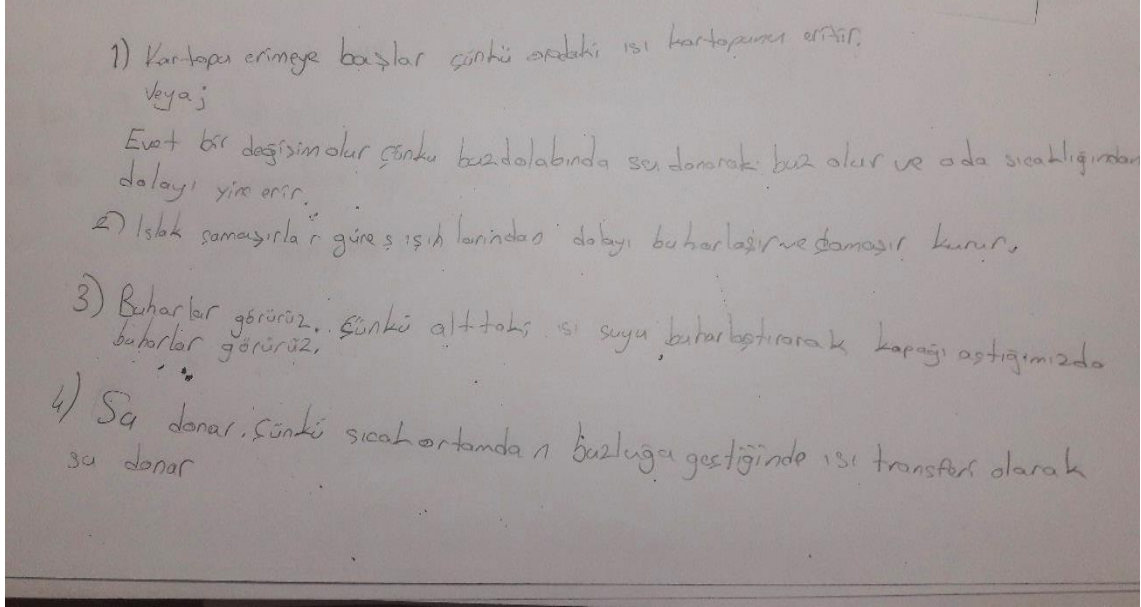 1) Kartopu erimeye başlar çünkü ordaki ısı kartopunu eritir.
Veya;
Evet bir değişim olur Çünkü buzdolabında su donarak buz olur ve oda sıcaklığından
dolayı yine erir.
2) Islak çamaşırlar güneş ışıklarından dolayı buharlaşır ve çamaşır kurur.
3) Buharlar görürüz. Çünkü alttaki ısı suyu buharlaştırarak kapağı açtığımızda
buharlar görürüz.
4) Su donar. Çünkü sıcak ortamdan buzluğa geçtiğinde ısı transferi olarak
su donar